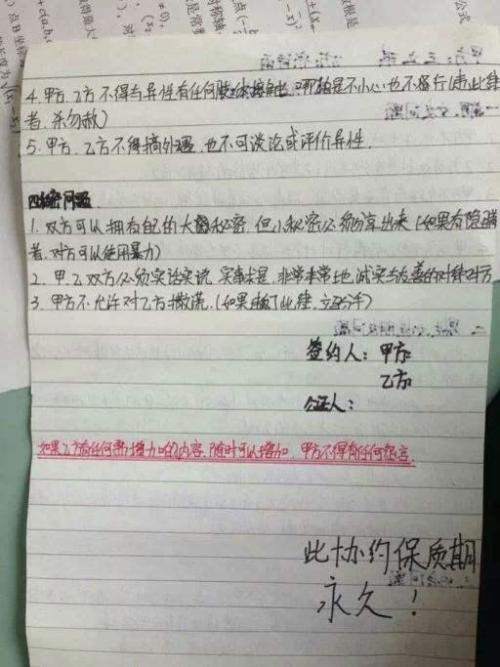 4. 甲方、乙方不得与异性有任何肢体接触,哪怕是不小心也不行(违此律
者,杀勿赦)
5. 甲方、乙方不得搞外遇,也不可谈论或评价异性.
四秘密问题
1. 双方可以拥有自己的大秘密,但小秘密必须分享出来(如果有隐瞒
者,对方可以使用暴力)
2. 甲.乙双方必须实话实说,实事求是,非常非常地诚实与友善的对待对方
3. 甲方不允许对乙方撒谎.(如果违了此律,立分手)
签约人:甲方
乙方
公证人:
如果乙方有任何需增加的内容,随时可以增加,甲方不得有任何怨言.
此协约保质期
永久!